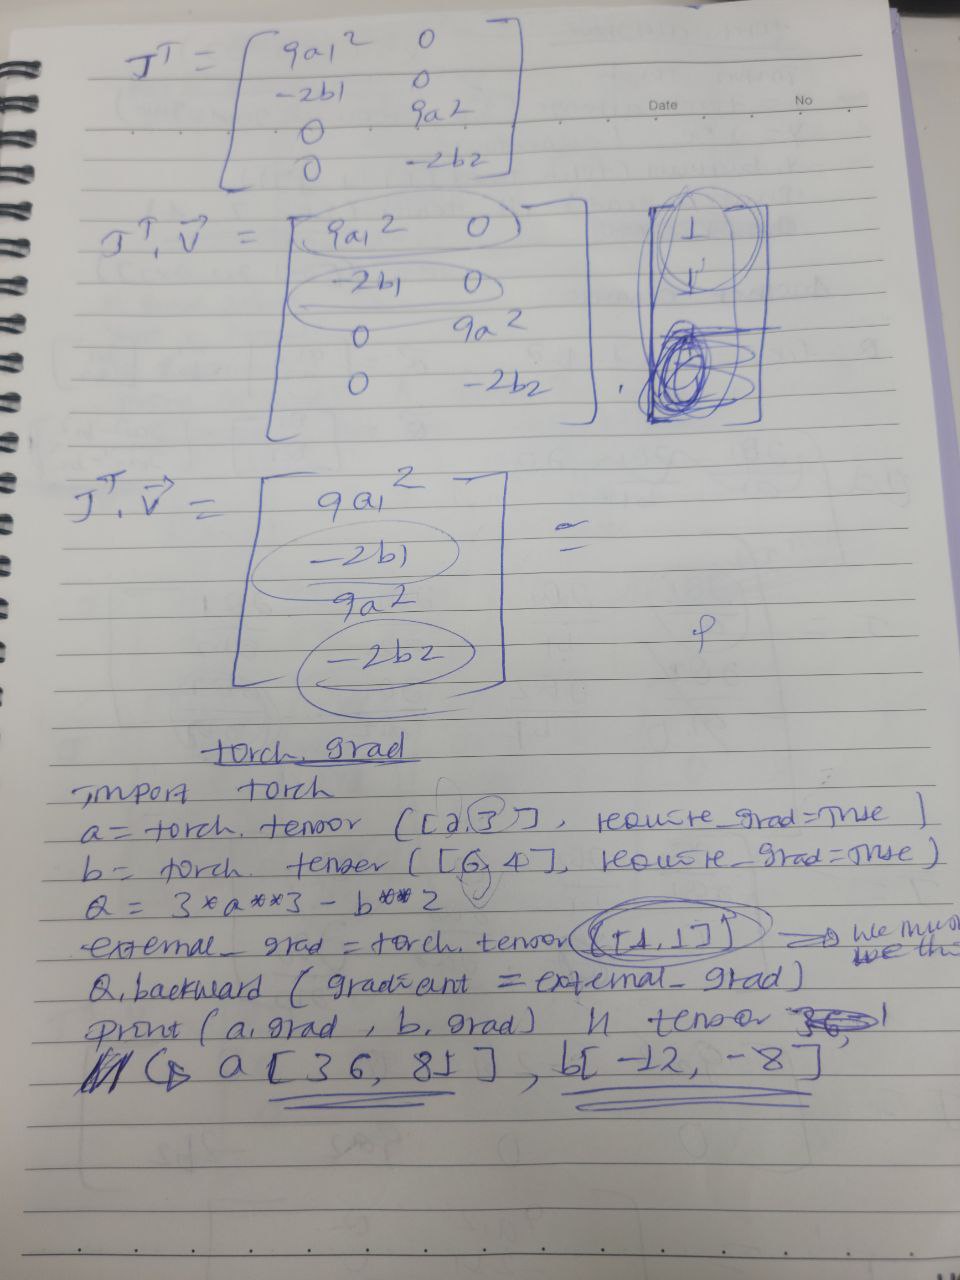 J^T = [ 9a1^2 0
-2b1 0
0 9a2
0 -2b2 ]
Date No
J^T. v = [ 9a1^2 0
-2b1 0
0 9a^2
0 -2b2 ] . [ 1
1 ]
J^T. v = [ 9a1^2
-2b1
9a^2
-2b2 ] =
torch. grad
import torch
a = torch. tensor ([2, 3], require_grad=True)
b = torch. tenser ([6, 4], require_grad=True)
Q = 3*a**3 - b**2
external_grad = torch. tensor ([1,1]) → we must
Q. backward (gradient = external_grad)
print (a. grad, b. grad) // tensor
a [36, 81], b[-12, -8]